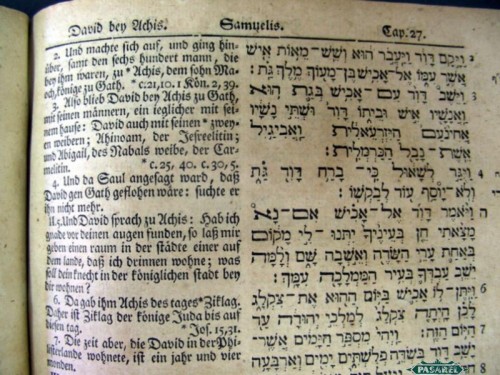 David bey Achis. Samuelis. Cap. 27.
2. Und machte sich auf, und ging hin-
über, samt den sechs hundert mann, die
bey ihm waren, zu *Achis, dem sohn Ma-
och, könige zu Gath. *c. 21, 10. 1 Kön. 2, 39.
3. Also blieb David bey Achis zu Gath,
mit seinen männern, ein ieglicher mit sei-
nem hause: David auch mit seinen *zwey-
en weibern; Ahinoam, der Jesreelitin;
und Abigail, des Nabals weibe, der Car-
melitin. *c. 25, 40. c. 30, 5.
4. Und da Saul angesagt ward, daß
David gen Gath geflohen wäre: suchte er
ihn nicht mehr.
5. Und David sprach zu Achis: Hab ich
gnade vor deinen augen funden, so laß mir
geben einen raum in der städte einer auf
dem lande, daß ich drinnen wohne; was
soll dein knecht in der königlichen stadt bey
dir wohnen?
6. Da gab ihm Achis des tages *Ziklag.
Daher ist Ziklag der könige Juda bis auf
diesen tag. *Jos. 15, 31.
7. Die zeit aber, die David in der Phi-
listerlande wohnete, ist ein jahr und vier
monden.
ויקם דוד ויעבר הוא ושש־מאות איש
אשר עמו אל־אכיש בן־מעוך מלך גת׃
וישב דוד עם־אכיש בגת הוא
ואנשיו איש וביתו דוד ושתי נשיו
אחינעם היזרעאלית ואביגיל
אשת־נבל הכרמלית׃
ויגד לשאול כי־ברח דוד גת
ולא־יוסף עוד לבקשו׃
ויאמר דוד אל־אכיש אם־נא
מצאתי חן בעיניך יתנו־לי מקום
באחת ערי השדה ואשבה שם ולמה
ישב עבדך בעיר הממלכה עמך׃
ויתן־לו אכיש ביום ההוא את־צקלג
לכן היתה צקלג למלכי יהודה עד
היום הזה׃ ויהי מספר הימים אשר־
ישב דוד בשדה פלשתים ימים וארבעה
PASAREL